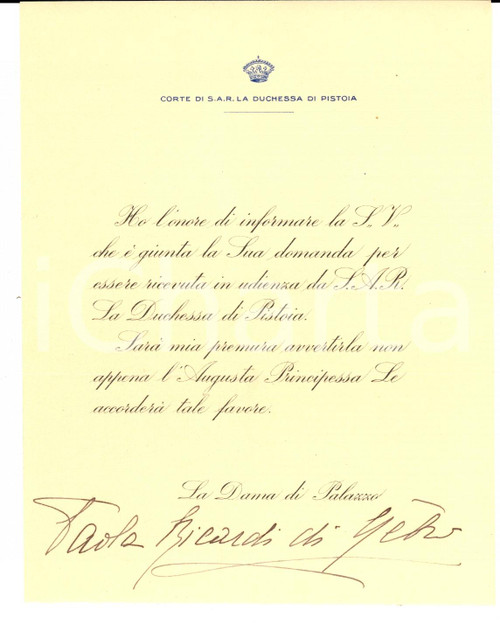 CORTE DI S.A.R. LA DUCHESSA DI PISTOIA
Ho l'onore di informare la S. V.
che è giunta la Sua domanda per
essere ricevuta in udienza da S.A.R.
La Duchessa di Pistoia.
Sarà mia premura avvertirla non
appena l'Augusta Principessa Le
accorderà tale favore.
La Dama di Palazzo
Paola Ricardi di Netro
iCharta